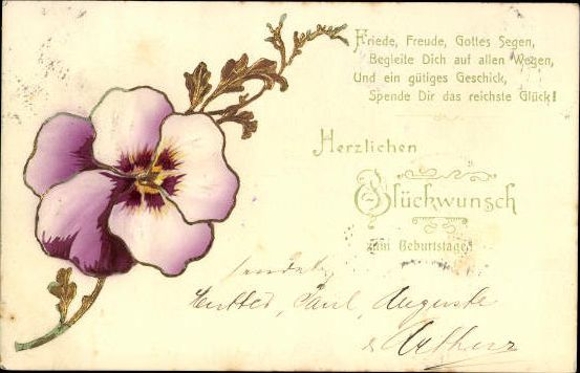 Friede, Freude, Gottes Segen,
Begleite Dich auf allen Wegen,
Und ein gütiges Geschick,
Spende Dir das reichste Glück!
Herzlichen
Glückwunsch
zum Geburtstage!
sendet
Paul, Auguste
& Arthur